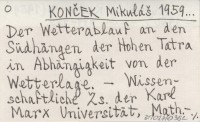 O KONČEK Mikuláš 1959...
Der Wetterablauf an den
Südhängen der Hohen Tatra
in Abhängigkeit von der
Wetterlage. - Wissen-
schaftliche Zs. der Karl
Marx Universität, Math-